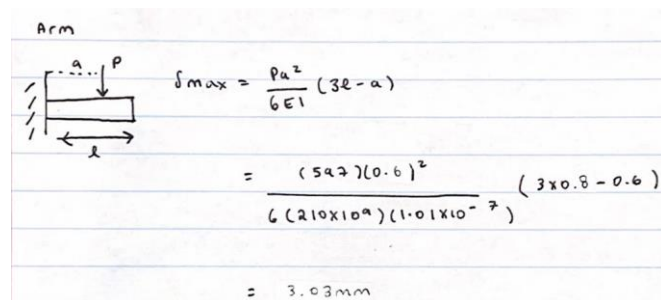 Arm
a P
δmax = Pa²/6EI (3l-a)
l
= (597)(0.6)²/6(210x10⁹)(1.01x10⁻⁷) (3x0.8-0.6)
= 3.03mm